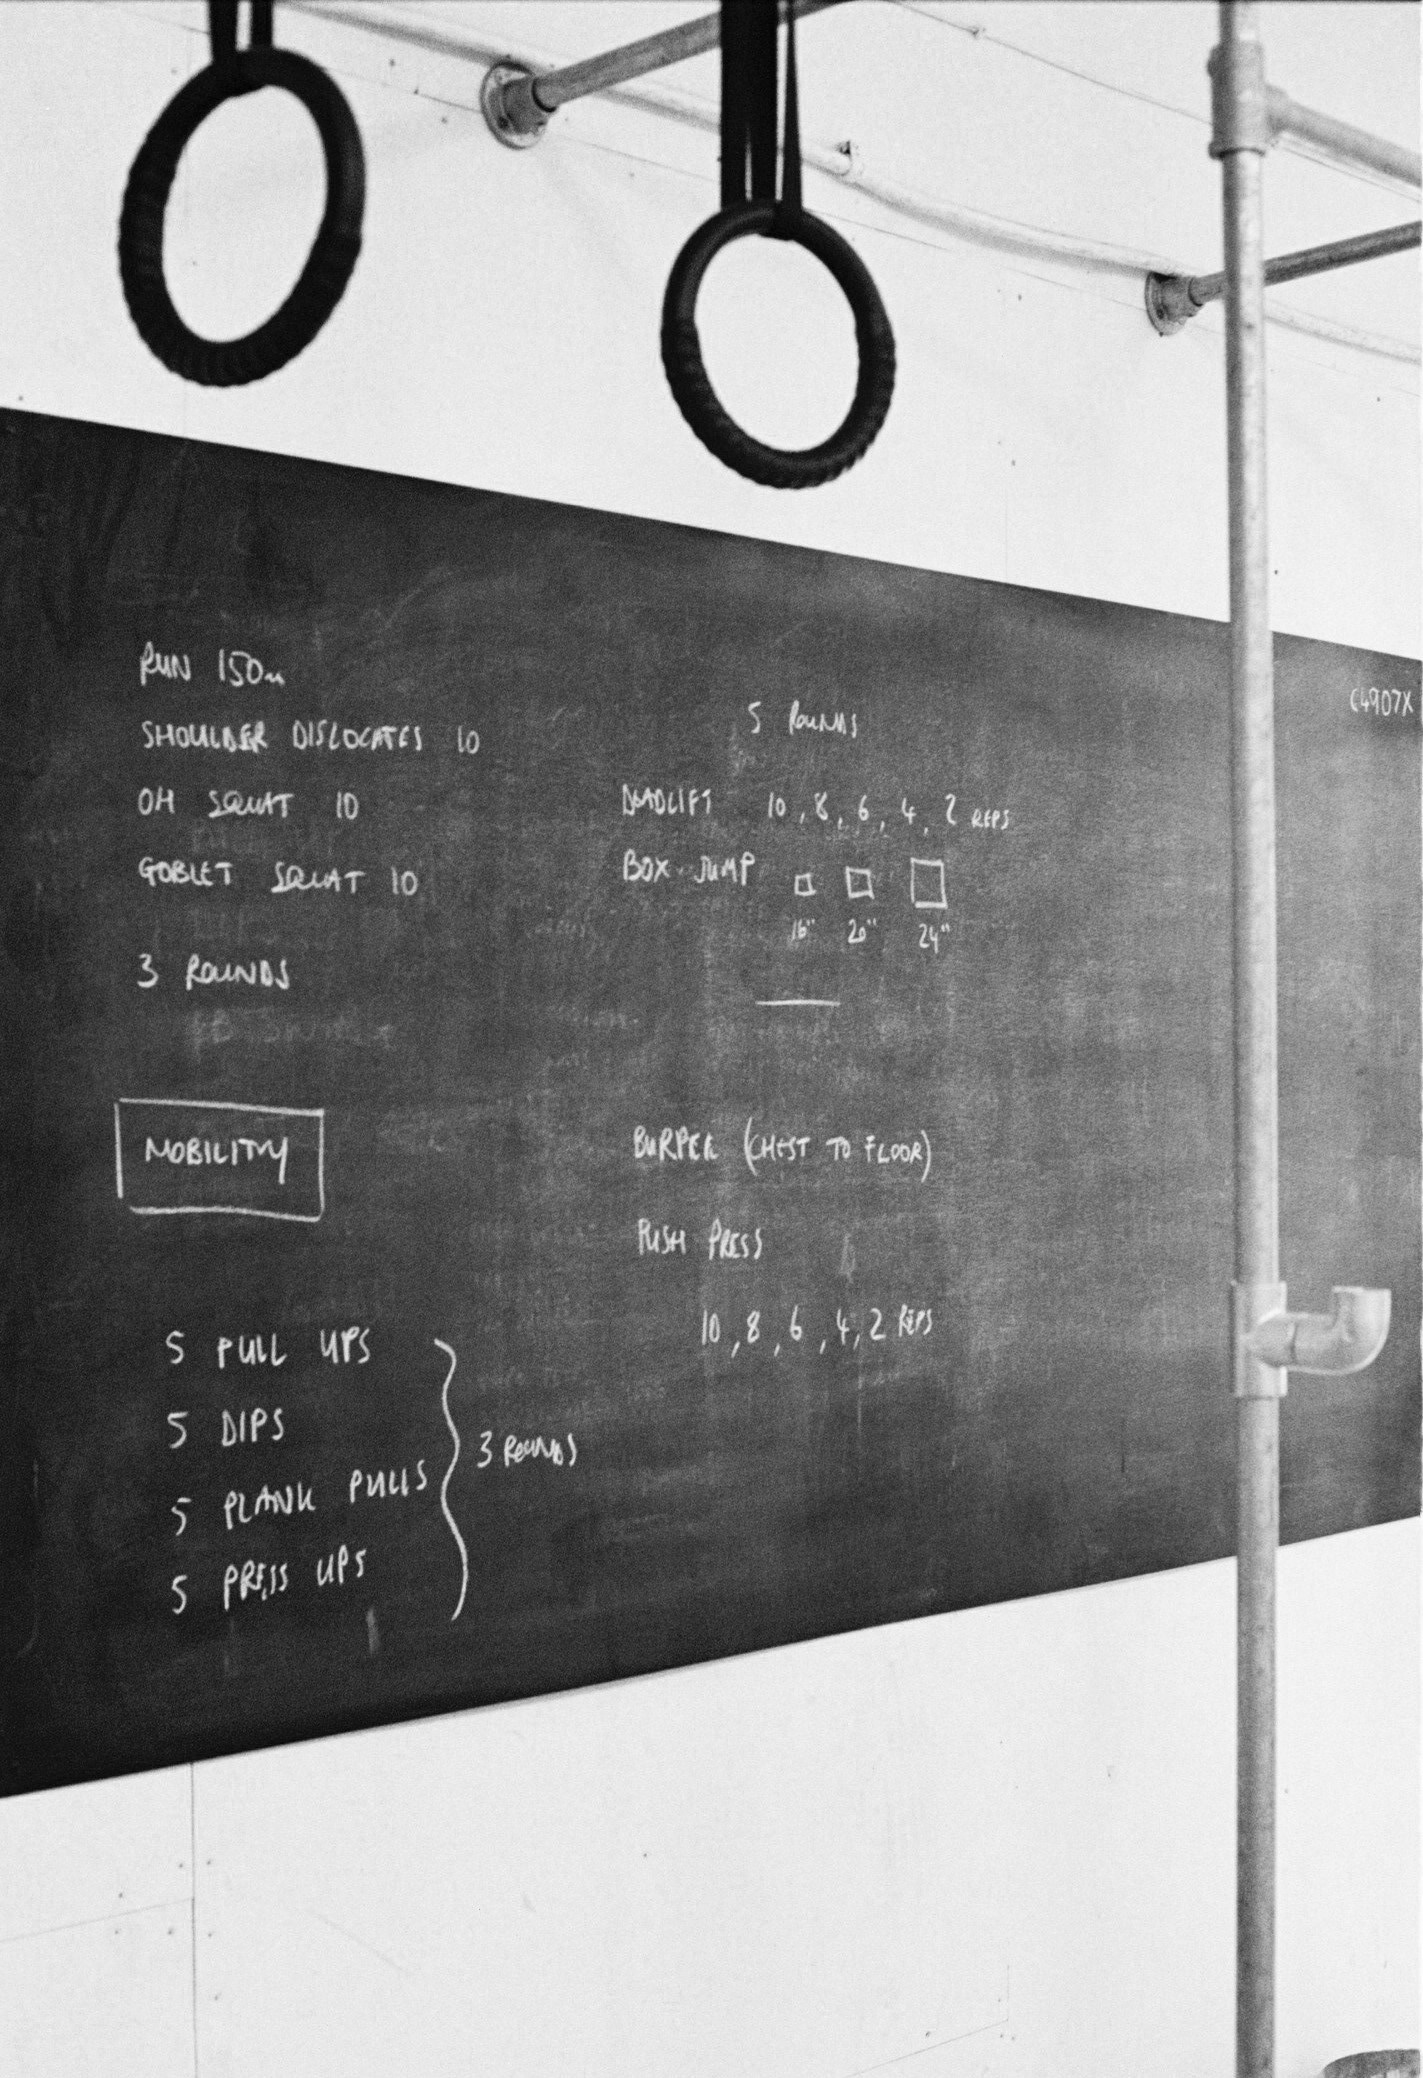 RUN 150m
SHOULDER DISLOCATES 10
OH SQUAT 10
GOBLET SQUAT 10
3 ROUNDS
MOBILITY
5 PULL UPS
5 DIPS
5 PLANK PULLS
5 PRESS UPS
3 ROUNDS
5 ROUNDS
DEADLIFT 10, 8, 6, 4, 2 REPS
BOX JUMP
16" 20" 24"
BURPEE (CHEST TO FLOOR)
PUSH PRESS
10, 8, 6, 4, 2 REPS
C4907X